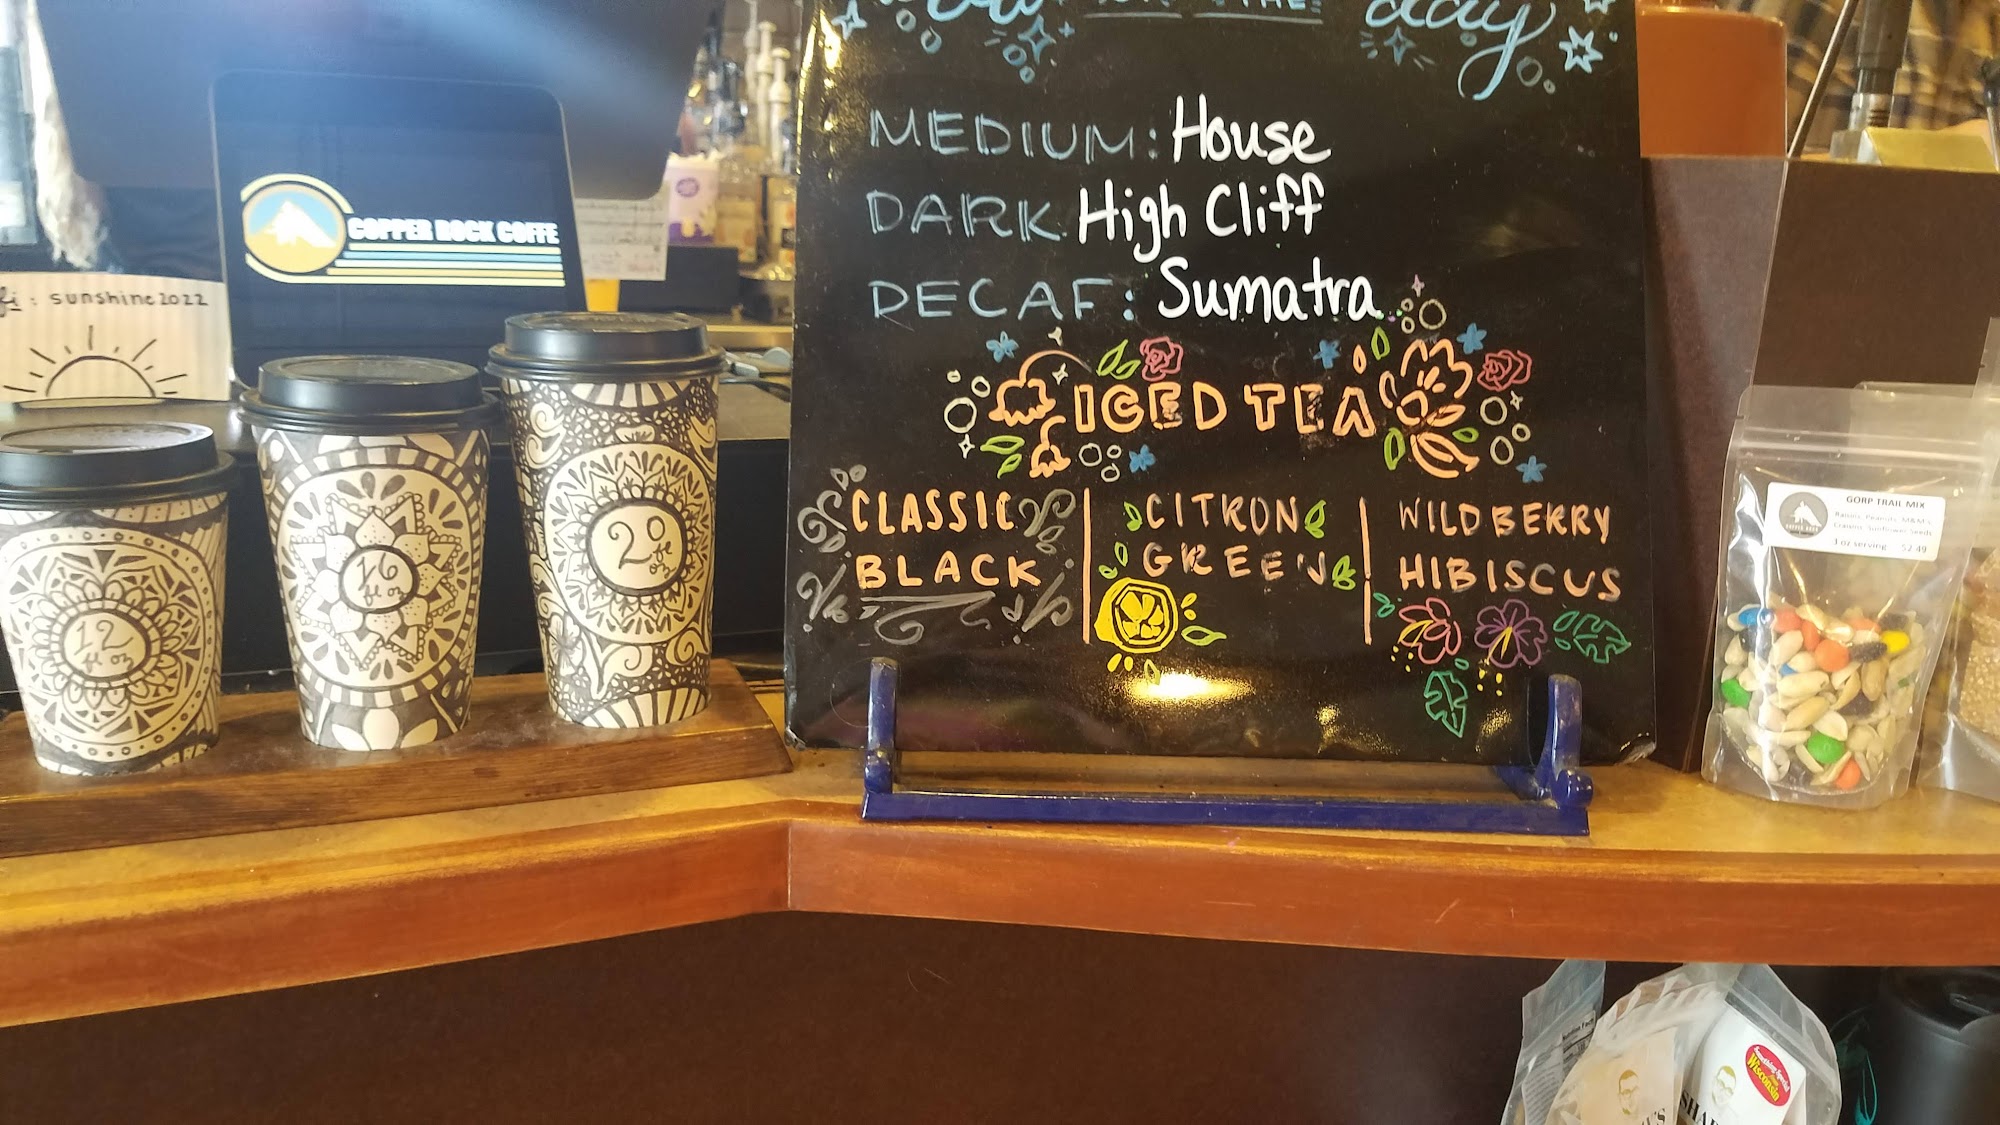 COPPER ROCK COFFE
fi: sunshine2022
12
fl oz
16
fl oz
20
oz
THE day
MEDIUM: House
DARK High Cliff
DECAF: Sumatra
ICED TEA
CLASSIC
BLACK
CITRON
GREEN
WILDBERRY
HIBISCUS
GORP TRAIL MIX
Raisins, Peanuts, M&M's,
Craisins, Sunflower Seeds
3 oz serving $2.49
Something Special
from
Wisconsin